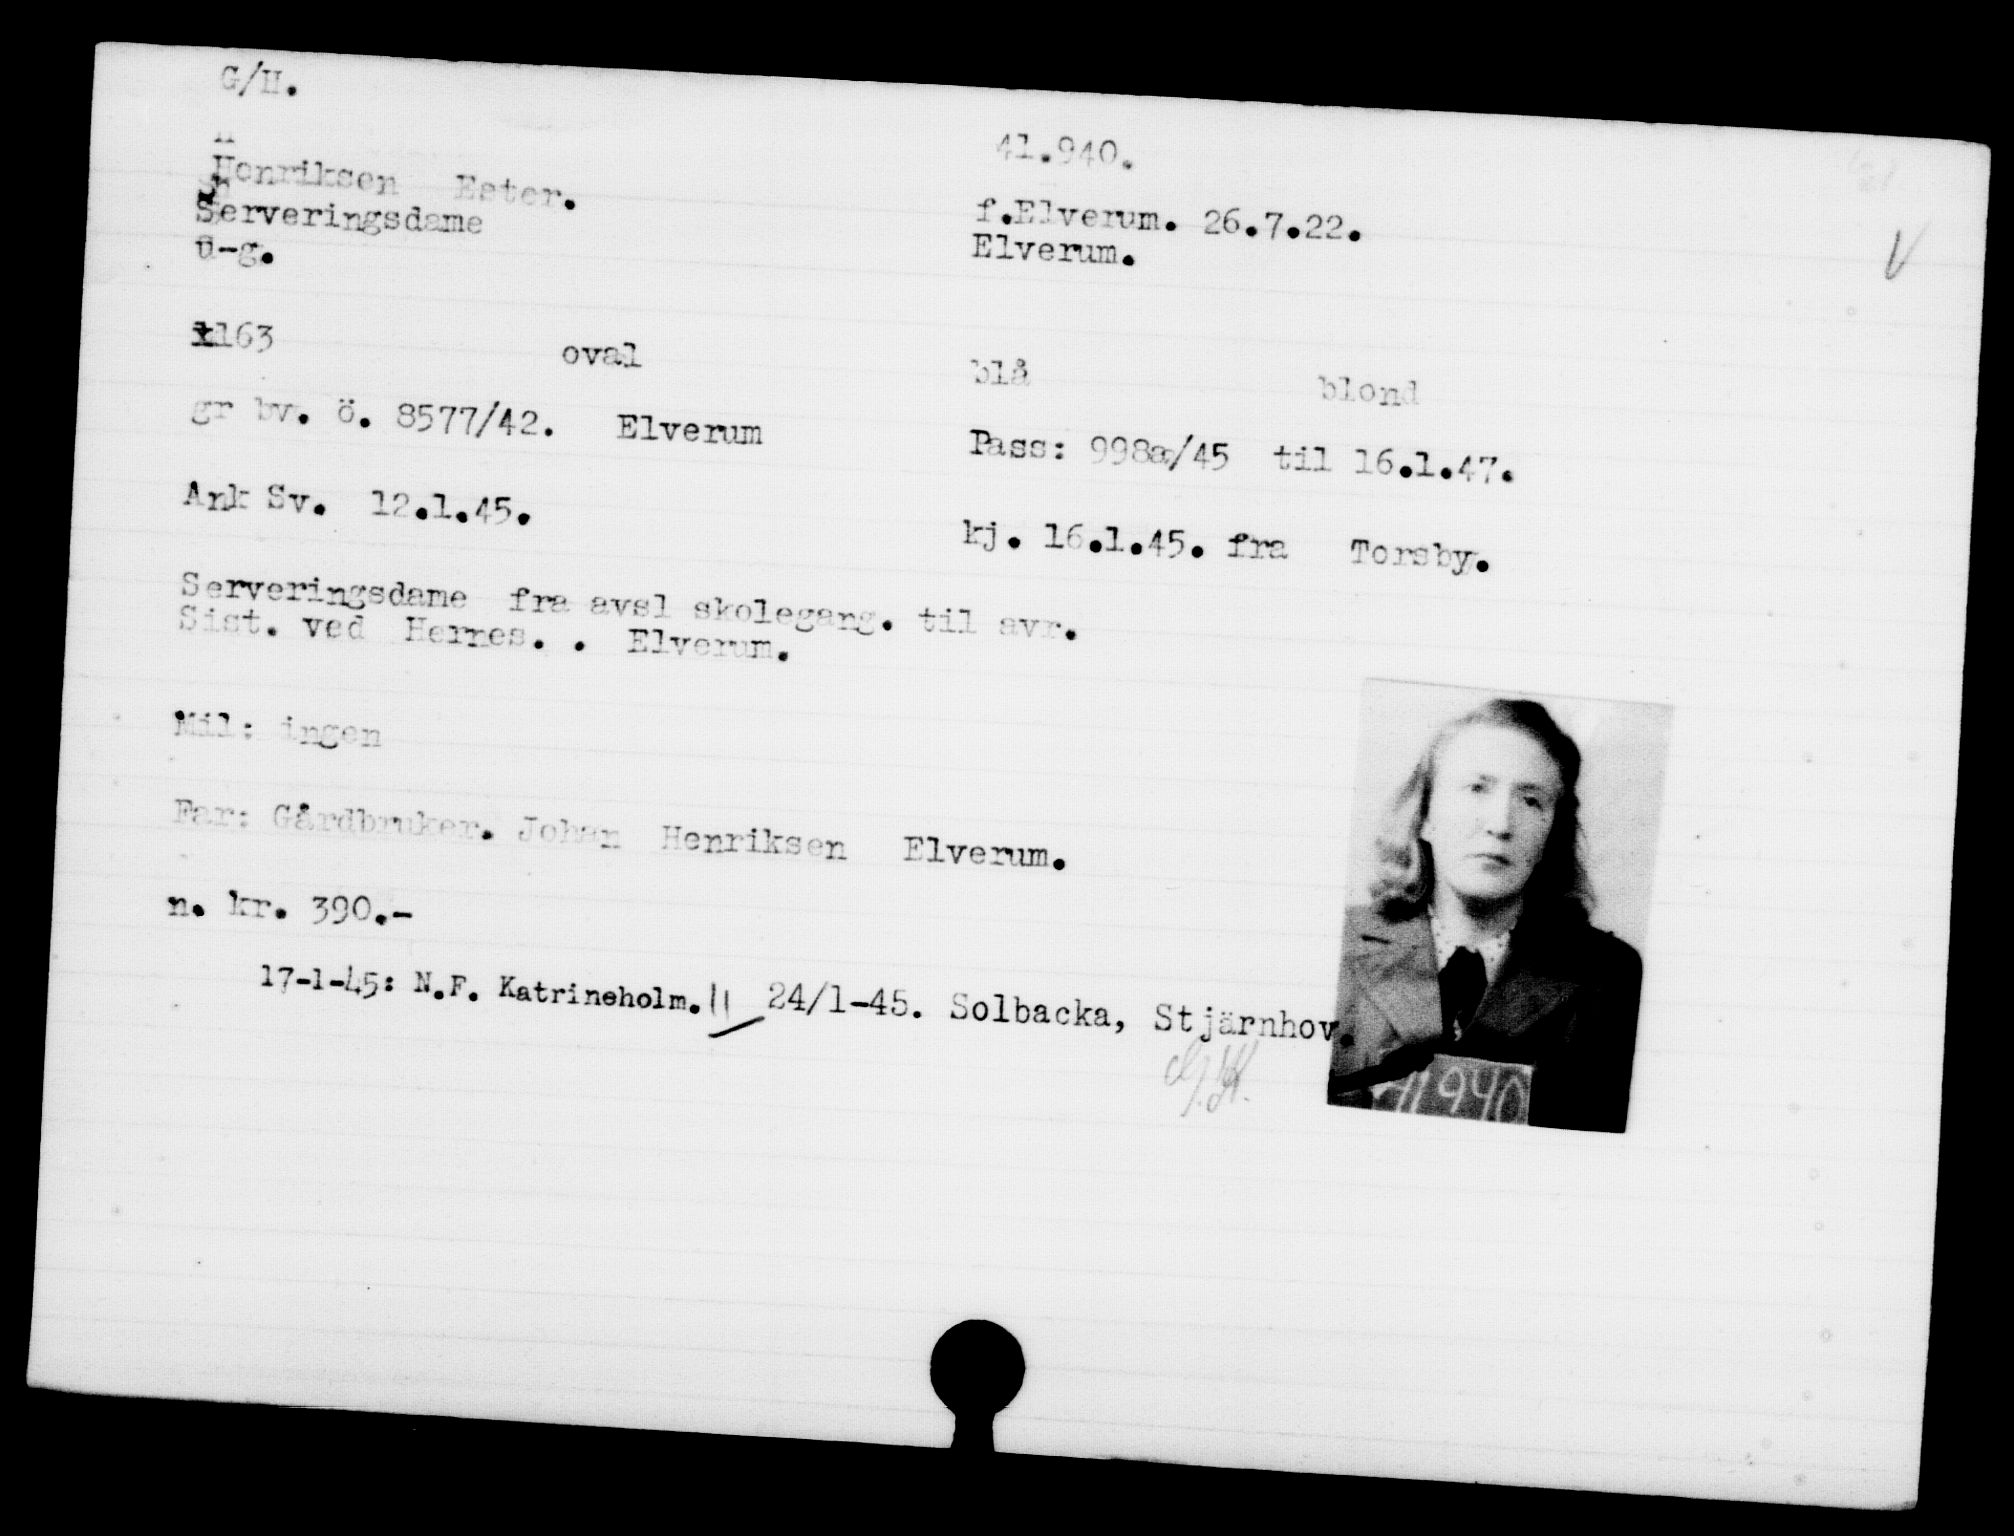 G/H.
41.940.
Henriksen Ester.
Serveringsdame
f.Elverum. 26.7.22.
u-g.
Elverum.
163 oval blå blond
gr bv. ö. 8577/42. Elverum
Pass: 998a/45 til 16.1.47.
Ank Sv. 12.1.45.
kj. 16.1.45. fra Torsby.
Serveringsdame fra avsl skolegang. til avr.
Sist. ved Hernes. . Elverum.
Mil: ingen
Far: Gårdbruker. Johan Henriksen Elverum.
n. kr. 390.-
17-1-45: N.F. Katrineholm. 24/1-45. Solbacka, Stjärnhov.
41940